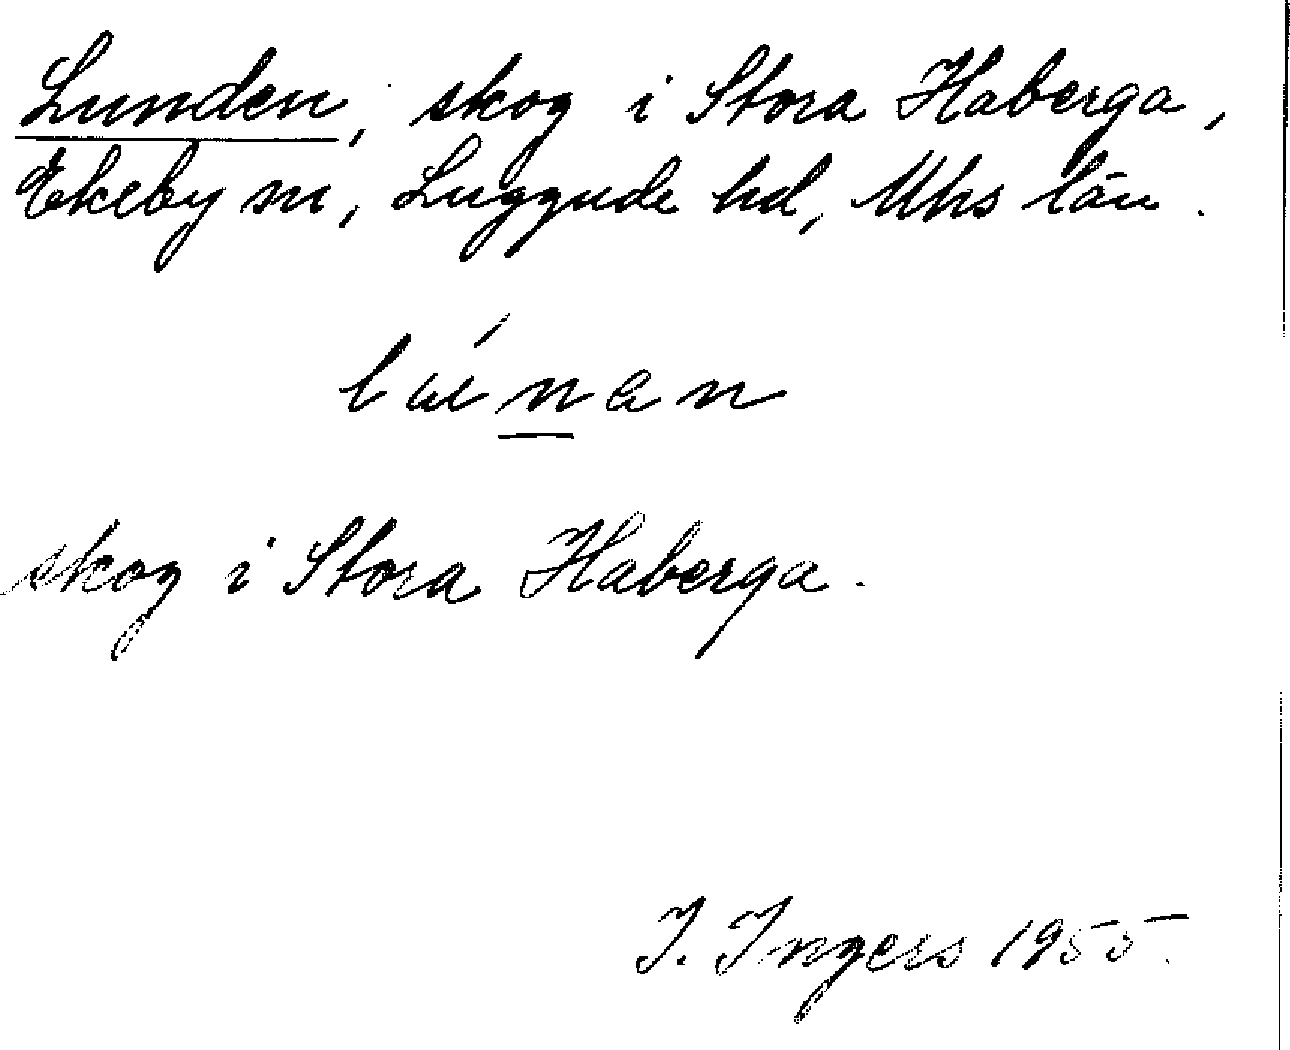 Lunden, skog i Stora Haberga,
Ekeby sn, Luggude hd, Mhs län.
skog i Stora Haberga.
I. Ingers 1955.